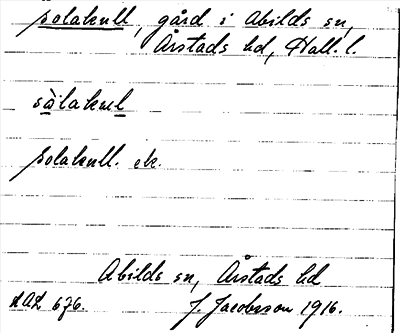 Solakull, gård i Abilds sn,
Årstads hd, Hall. l.
sàlakul
Solakull. ek.
Abilds sn, Årstads hd
HAL 676. J. Jacobsson 1916.